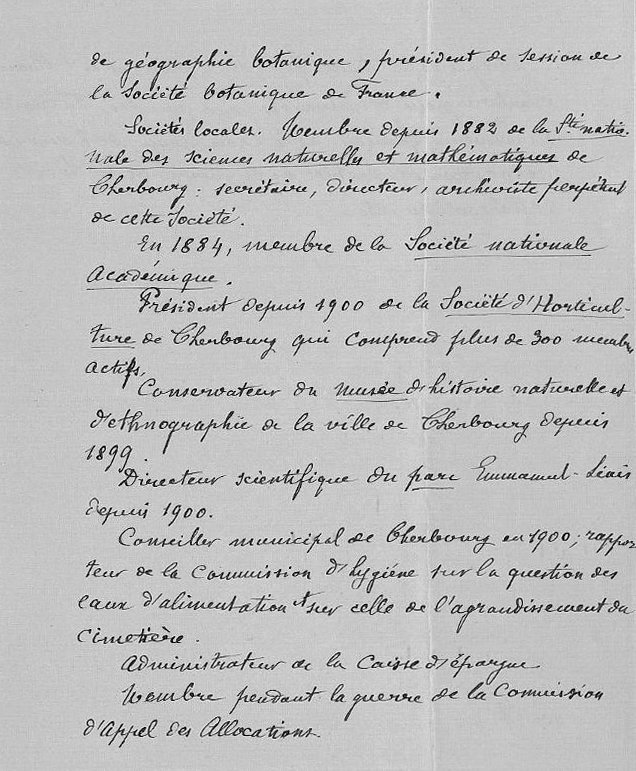 de géographie botanique, président de session de
la Société botanique de France.
Sociétés locales. Membre depuis 1882 de la Sté natio-
nale des sciences naturelles et mathématiques de
Cherbourg : secrétaire, directeur, archiviste perpétuel
de cette Société.
En 1884, membre de la Société nationale
Académique.
Président depuis 1900 de la Société d'Horticul-
ture de Cherbourg qui comprend plus de 300 membres
actifs.
Conservateur du musée d'histoire naturelle et
d'ethnographie de la ville de Cherbourg depuis
1899.
Directeur scientifique du parc Emmanuel-Liais
depuis 1900.
Conseiller municipal de Cherbourg en 1900 ; rappor
teur de la Commission d'hygiène sur la question des
eaux d'alimentation et sur celle de l'agrandissement du
cimetière.
Administrateur de la Caisse d'épargne
Membre pendant la guerre de la Commission
d'Appel des Allocations.